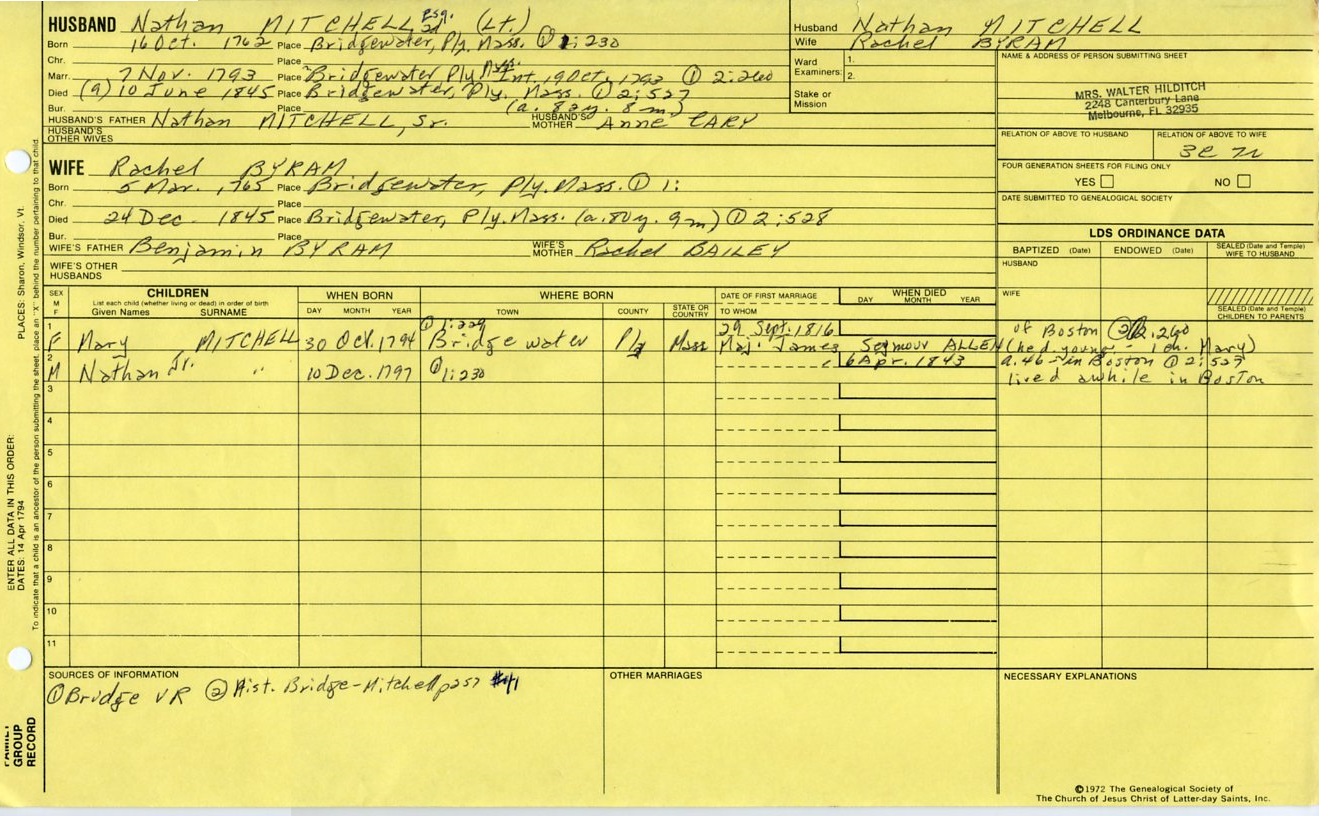 HUSBAND Nathan MITCHELL, Esq. 2d (Lt.)
Born 16 Oct. 1762 Place Bridgewater, Ply. Mass. ① 1:230
Chr. Place
Marr. 7 Nov. 1793 Place Bridgewater Ply Mass. Int. 19 Oct. 1793 ① 2:260
Died (9) 10 June 1845 Place Bridgewater, Ply. Mass. ① 2:527
Bur. Place (a. 82y. 8m)
HUSBAND'S FATHER Nathan MITCHELL, Sr. HUSBAND'S MOTHER Anne CARY
HUSBAND'S OTHER WIVES
Husband Nathan MITCHELL
Wife Rachel BYRAM
Ward Examiners: 1. 2.
Stake or Mission
NAME & ADDRESS OF PERSON SUBMITTING SHEET
MRS. WALTER HILDITCH
2248 Canterbury Lane
Melbourne, FL 32935
RELATION OF ABOVE TO HUSBAND RELATION OF ABOVE TO WIFE
FOUR GENERATION SHEETS FOR FILING ONLY
YES NO
DATE SUBMITTED TO GENEALOGICAL SOCIETY
WIFE Rachel BYRAM
Born 5 Mar. 1765 Place Bridgewater, Ply. Mass. ① 1:
Chr. Place
Died 24 Dec 1845 Place Bridgewater, Ply. Mass. (a. 80y. 9m) ① 2:528
Bur. Place
WIFE'S FATHER Benjamin BYRAM WIFE'S MOTHER Rachel BAILEY
WIFE'S OTHER HUSBANDS
LDS ORDINANCE DATA
BAPTIZED (Date) ENDOWED (Date) SEALED (Date and Temple) WIFE TO HUSBAND
HUSBAND
WIFE
SEALED (Date and Temple) CHILDREN TO PARENTS
SEX M F CHILDREN WHEN BORN WHERE BORN DATE OF FIRST MARRIAGE WHEN DIED
List each child (whether living or dead) in order of birth
Given Names SURNAME DAY MONTH YEAR TOWN COUNTY STATE OR COUNTRY TO WHOM DAY MONTH YEAR
1 ① 1:229 29 Sept. 1816 of Boston 2:260
F Mary MITCHELL 30 Oct. 1794 Bridgewater Ply Mass Maj. James Seymour ALLEN (he d. young - 1 ch. Mary)
2 6 Apr. 1843 a. 46 in Boston ① 2:527
M Nathan Jr. " 10 Dec. 1797 ① 1:230 lived awhile in Boston
3
4
5
6
7
8
9
10
11
SOURCES OF INFORMATION
① Brudge VR ② Hist. Bridge-Mitchell p257 #41
OTHER MARRIAGES
NECESSARY EXPLANATIONS
©1972 The Genealogical Society of
The Church of Jesus Christ of Latter-day Saints, Inc.
PLACES: Sharon, Windsor, Vt.
To indicate that a child is an ancestor of the person submitting the sheet, place an "X" behind the number pertaining to that child.
ENTER ALL DATA IN THIS ORDER:
DATES: 14 Apr 1794
FAMILY GROUP RECORD